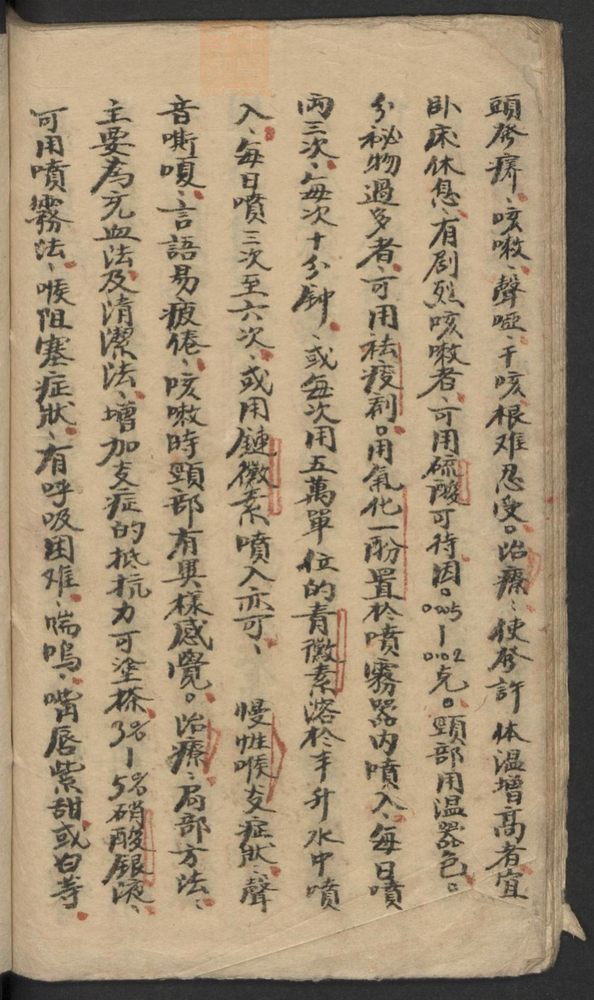 頭發癢、咳嗽、聲啞、干咳根难忍受。治療：使發許体温增高者宜
卧床休息、有剧烈咳嗽者、可用硫酸可待因。0.005—0.02克。頸部用温器色。
分秘物過多者、可用祛痰剂。用氣化一酚置於噴霧器内噴入、每日噴
两三次、每次十分钟、或每次用五萬單位的青黴素溶於半升水中噴
入、每日噴三次至六次、或用鏈黴素噴入亦可、 慢性喉支症狀、聲
音嘶嗄、言語易疲倦、咳嗽時頸部有異樣感覺。治療：局部方法、
主要為充血法及清潔法、增加支症的抵抗力可塗搽3%—5%硝酸銀液、
可用噴霧法、喉阻塞症狀、有呼吸困难、喘鳴、嘴唇紫甜或白等、